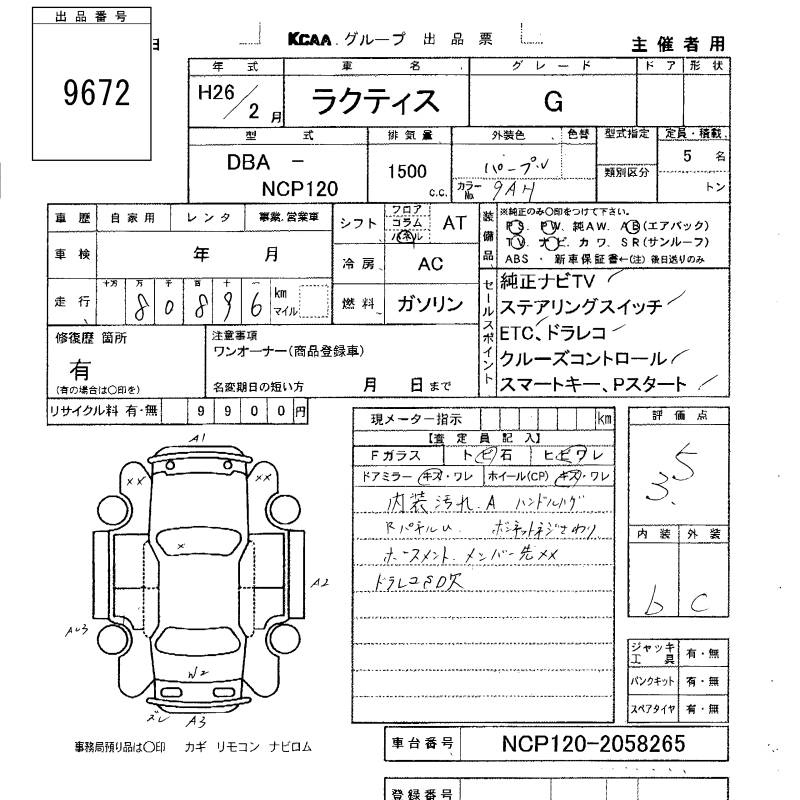 出品番号
9672
KCAA グループ 出品票
主催者用
年式 車名 グレード ドア 形状
H26/2月 ラクティス G
型式 排気量 外装色 色替 型式指定 定員・積載
DBA - NCP120 1500 c.c. パープル 5 名
カラーNo. 9AH 類別区分 トン
車歴 自家用 レンタ 事業.営業車
シフト フロア コラム パネル AT
装備品 ※純正のみ〇印をつけて下さい。
PS. PW. 純AW. AB(エアバック)
TV. ナビ. カワ. SR(サンルーフ)
ABS ・ 新車保証書←(注) 後日送りのみ
車検 年 月
冷房 AC
走行 十万 万 千 百 十 一
80896 km マイル
燃料 ガソリン
セールスポイント
純正ナビTV
ステアリングスイッチ
ETC、ドラレコ
クルーズコントロール
スマートキー、Pスタート
修復歴 箇所
有
(有の場合は〇印を)
注意事項
ワンオーナー(商品登録車)
名変期日の短い方 月 日まで
リサイクル料 有・無 9900円
現メーター指示 km
【査定員記入】
Fガラス トビ石 ヒビワレ
ドアミラー キズ・ワレ ホイール(CP) キズ・ワレ
内装汚れ.A ハンドルハゲ
RパネルU ボンネットネジさわり
ホースメント.メンバー先XX
ドラレコSD欠
評価点
3.5
内装 外装
b C
ジャッキ工具 有・無
パンクキット 有・無
スペアタイヤ 有・無
A1
XX XX
X
A2
AU3
W2
ズレ A3
事務局預り品は〇印 カギ リモコン ナビロム
車台番号 NCP120-2058265
登録番号